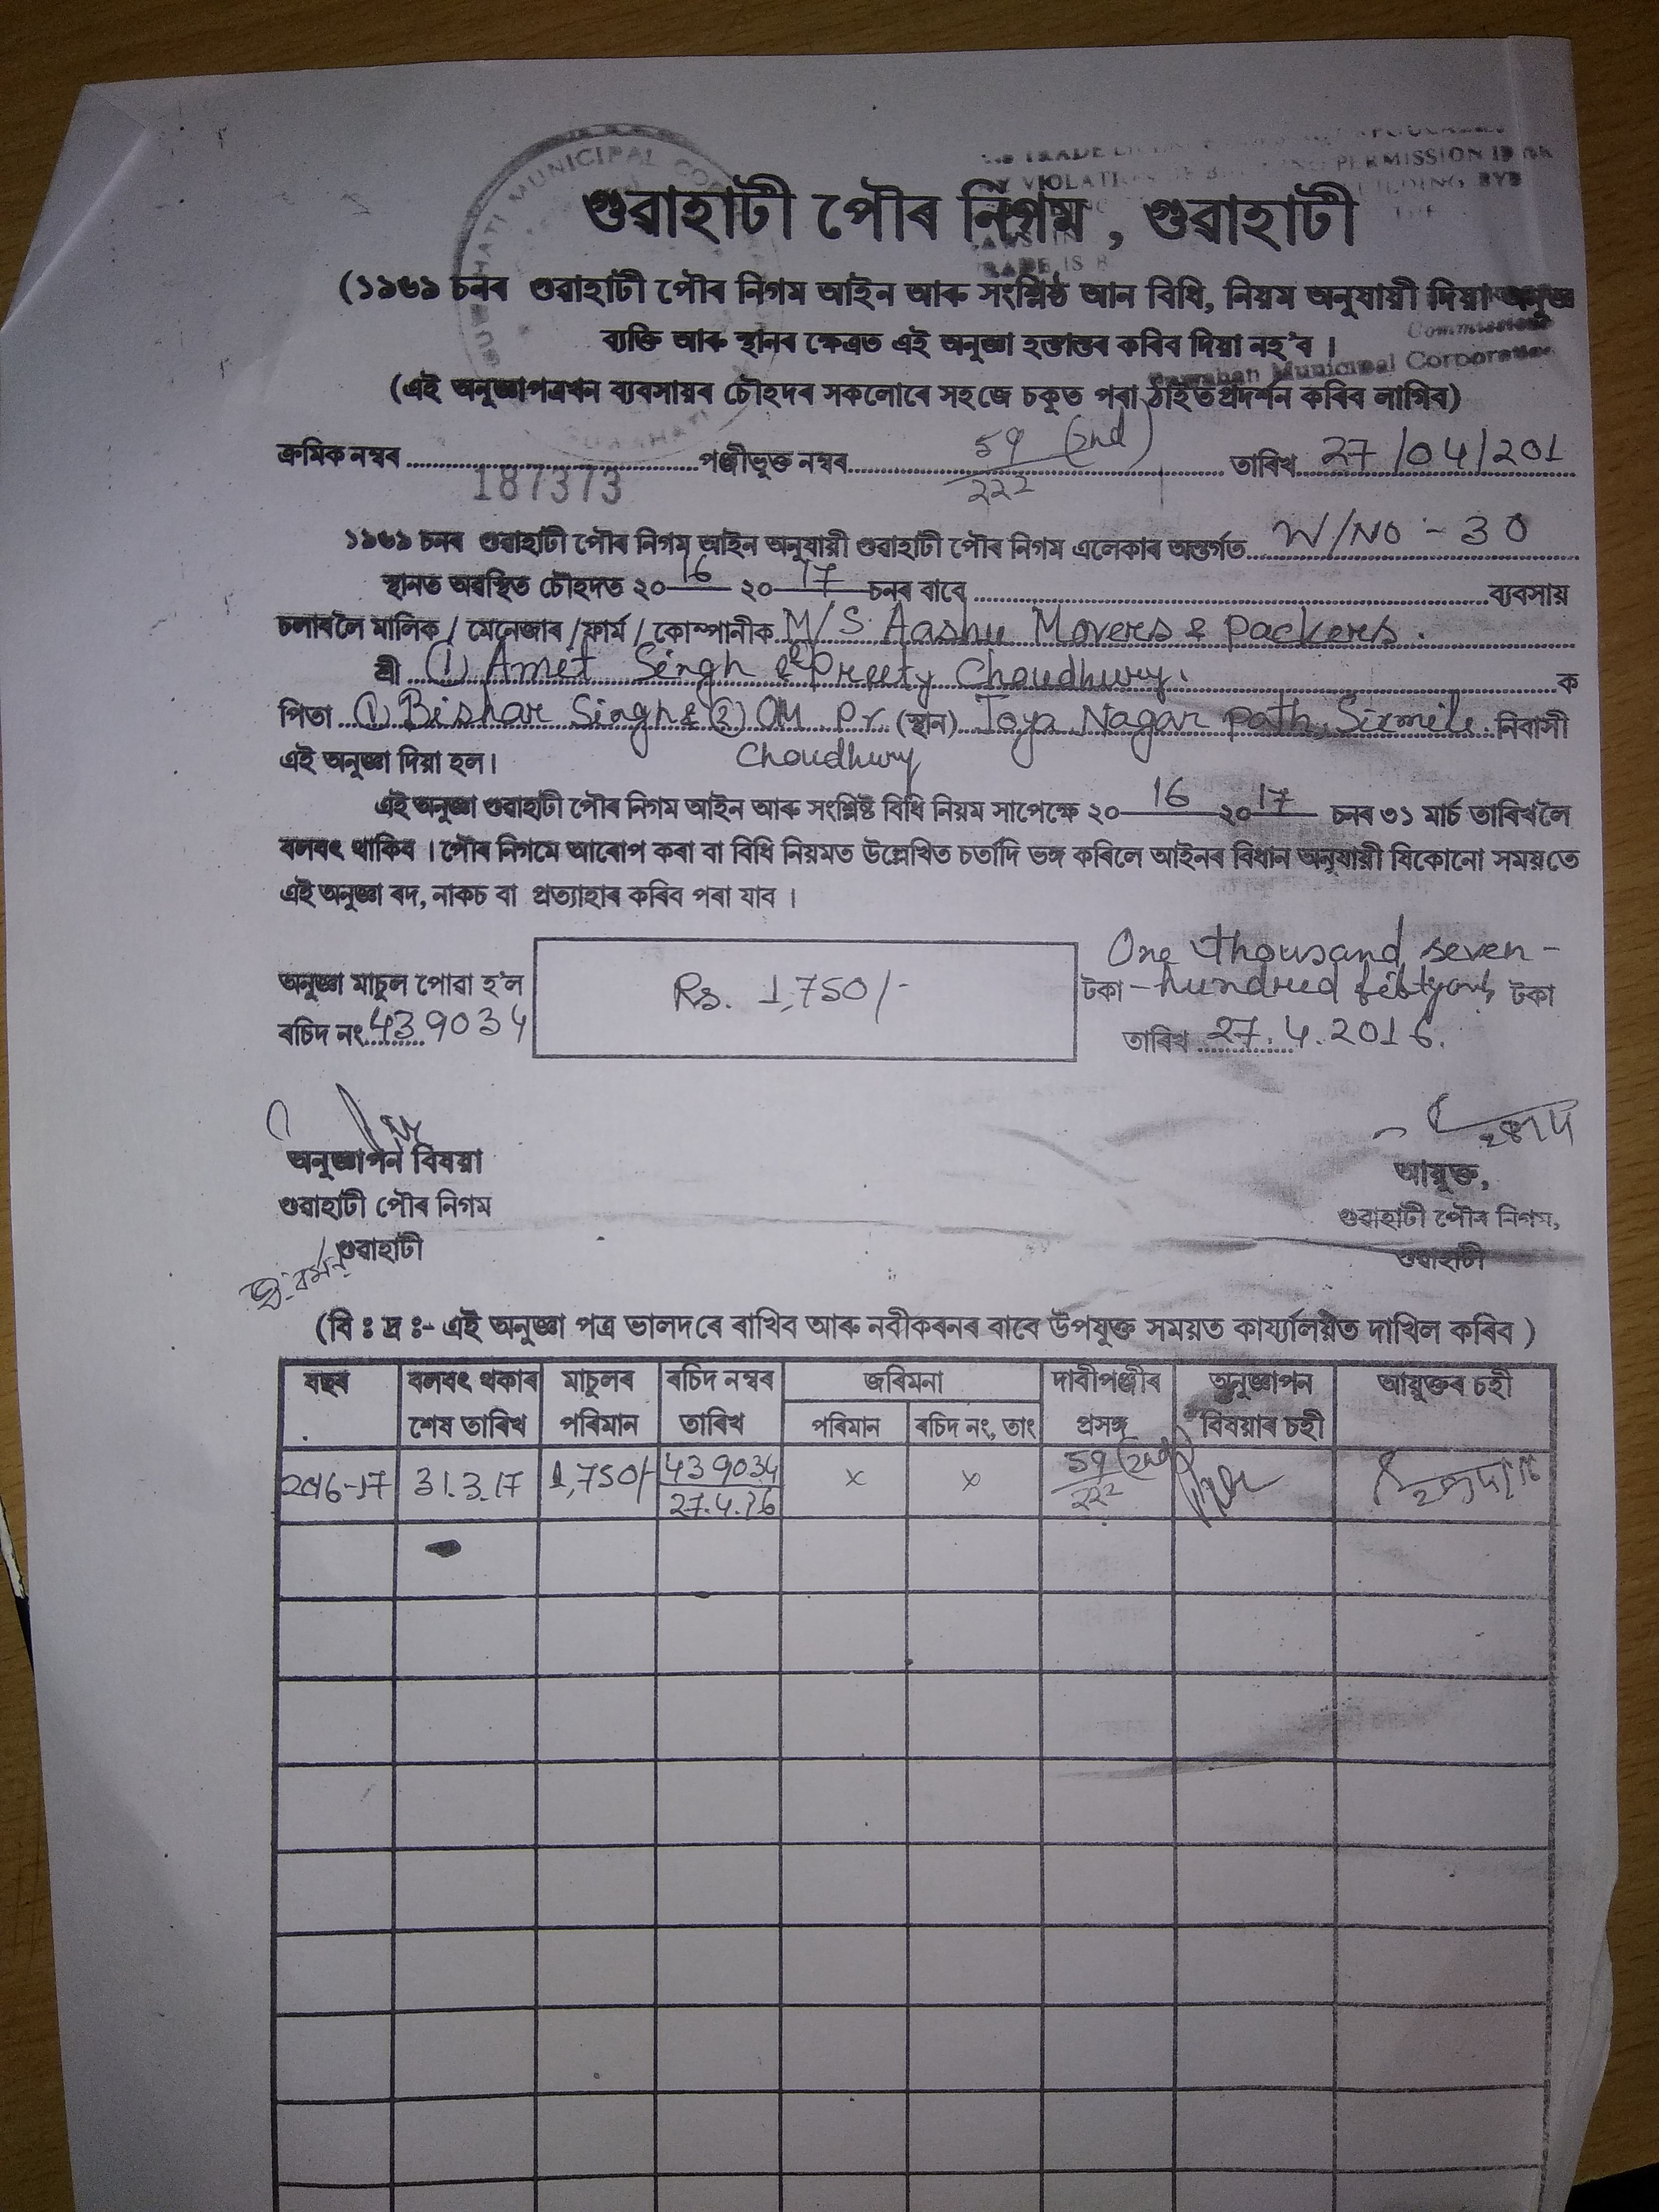 MUNICIPAL
PERMISSION IS
গুৱাহাটী পৌৰ নিগম , গুৱাহাটী
(১৯৬৯ চনৰ গুৱাহাটী পৌৰ নিগম আইন আৰু সংশ্লিষ্ঠ আন বিধি, নিয়ম অনুযায়ী দিয়া অনুজ্ঞা
ব্যক্তি আৰু স্থানৰ ক্ষেত্ৰত এই অনুজ্ঞা হস্তান্তৰ কৰিব দিয়া নহ'ব ।
Municipal Corporation
(এই অনুজ্ঞাপত্ৰখন ব্যবসায়ৰ চৌহদৰ সকলোৰে সহজে চকুত পৰা ঠাইত প্ৰদৰ্শন কৰিব লাগিব)
ক্ৰমিক নম্বৰ 187373 পঞ্জীভূক্ত নম্বৰ 59 (2nd) / 222 তাৰিখ 27/04/201
১৯৬৯ চনৰ গুৱাহাটী পৌৰ নিগম আইন অনুযায়ী গুৱাহাটী পৌৰ নিগম এলেকাৰ অন্তৰ্গত W/NO - 30
স্থানত অৱস্থিত চৌহদত ২০ 16 ২০ 17 চনৰ বাবে ব্যবসায়
চলাবলৈ মালিক / মেনেজাৰ / ফাৰ্ম / কোম্পানীক M/S. Aashu Movers & Packers.
শ্ৰী (1) Amit Singh & Preety Choudhury. ক
পিতা (1) Bishar Singh & (2) OM Pr. Choudhury (স্থান) Joya Nagar Path, Sixmile নিবাসী
এই অনুজ্ঞা দিয়া হল।
এই অনুজ্ঞা গুৱাহাটী পৌৰ নিগম আইন আৰু সংশ্লিষ্ট বিধি নিয়ম সাপেক্ষে ২০ 16 ২০ 17 চনৰ ৩১ মাৰ্চ তাৰিখলৈ
বলবৎ থাকিব । পৌৰ নিগমে আৰোপ কৰা বা বিধি নিয়মত উল্লেখিত চৰ্তাদি ভঙ্গ কৰিলে আইনৰ বিধান অনুযায়ী যিকোনো সময়তে
এই অনুজ্ঞা ৰদ, নাকচ বা প্ৰত্যাহাৰ কৰিব পৰা যাব ।
One thousand seven-
অনুজ্ঞা মাচুল পোৱা হ'ল Rs. 1,750/- টকা -hundred fifty only টকা
ৰচিদ নং 439034 তাৰিখ 27.4.2016.
অনুজ্ঞাপন বিষয়া আয়ুক্ত,
গুৱাহাটী পৌৰ নিগম গুৱাহাটী পৌৰ নিগম,
গুৱাহাটী গুৱাহাটী
(বি ঃ দ্ৰ ঃ- এই অনুজ্ঞা পত্ৰ ভালদৰে ৰাখিব আৰু নবীকৰনৰ বাবে উপযুক্ত সময়ত কাৰ্য্যালয়ত দাখিল কৰিব )
বছৰ বলবৎ থকাৰ মাচুলৰ ৰচিদ নম্বৰ জৰিমনা দাবীপঞ্জীৰ অনুজ্ঞাপন আয়ুক্তৰ চহী
শেষ তাৰিখ পৰিমান তাৰিখ পৰিমান ৰচিদ নং, তাং প্ৰসঙ্গ বিষয়াৰ চহী
2016-17 31.3.17 1,750/- 439034 x x 59 (2nd)
27.4.16 222